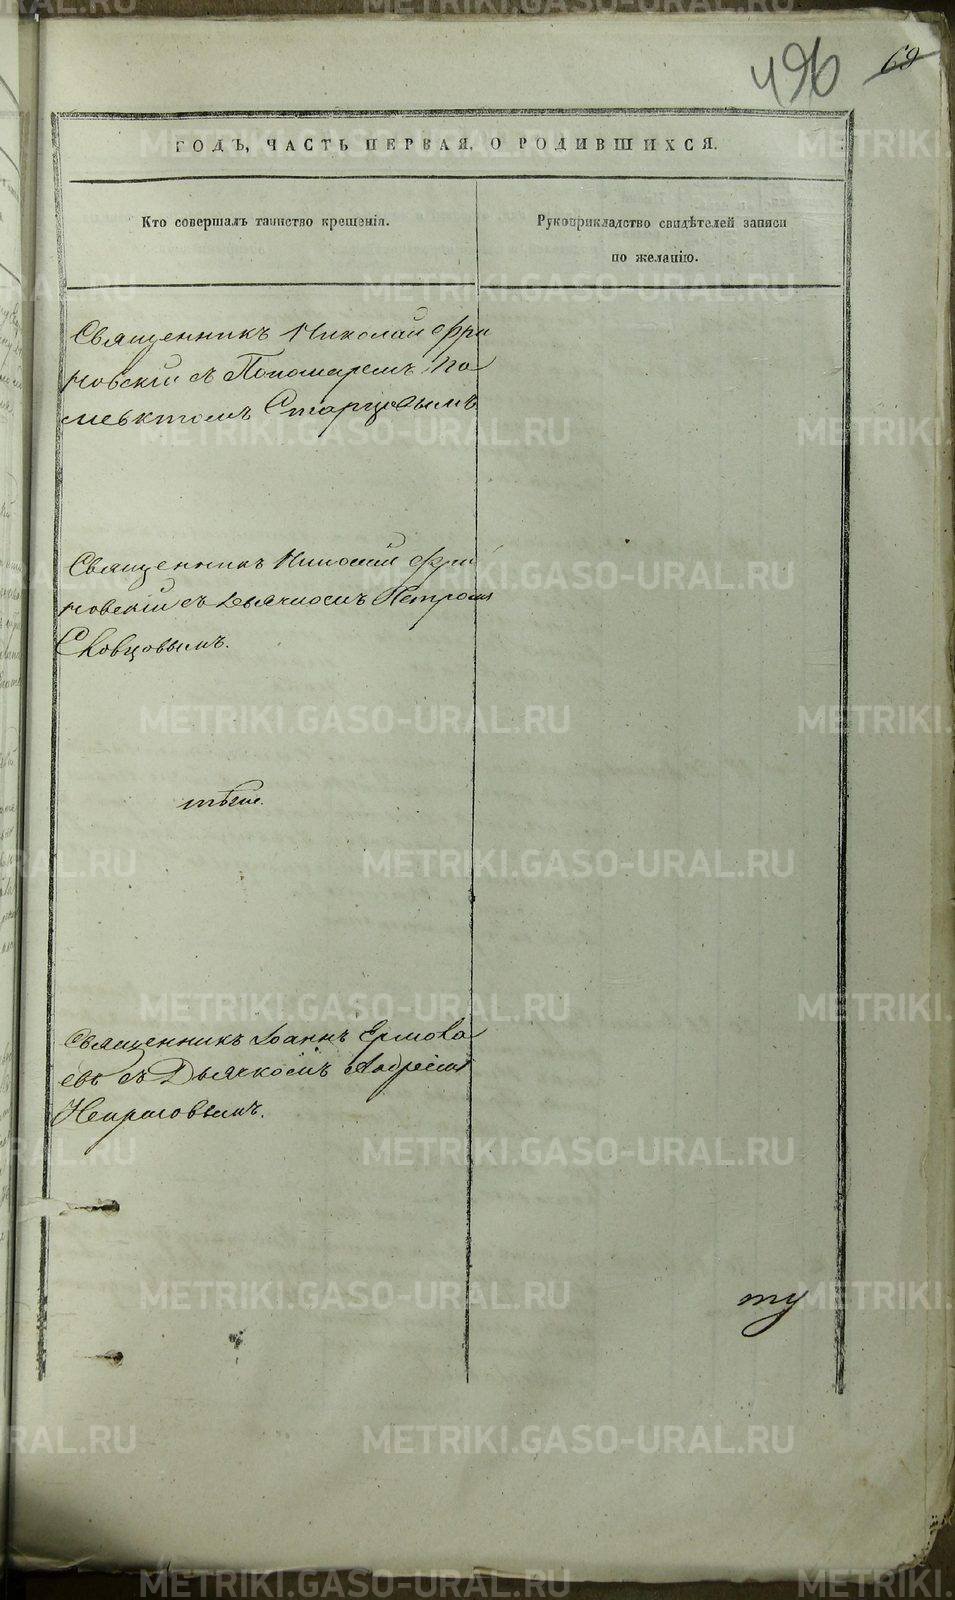 496
69
ГОДЪ, ЧАСТЬ ПЕРВАЯ, О РОДИВШИХСЯ.
Кто совершалъ таинство крещенія.
Рукоприкладство свидѣтелей записи
по желанію.
Священникъ Николай Фри
новскій съ Пономаремъ По
лиевктомъ Старцовымъ
Священникъ Николай Фри
новскій съ Дьячкомъ Петромъ
Сковцовымъ.
тѣже.
Священникъ Іоаннъ Ермола
евъ съ Дьячкомъ Андреемъ
ту
METRIKI.GASO-URAL.RU